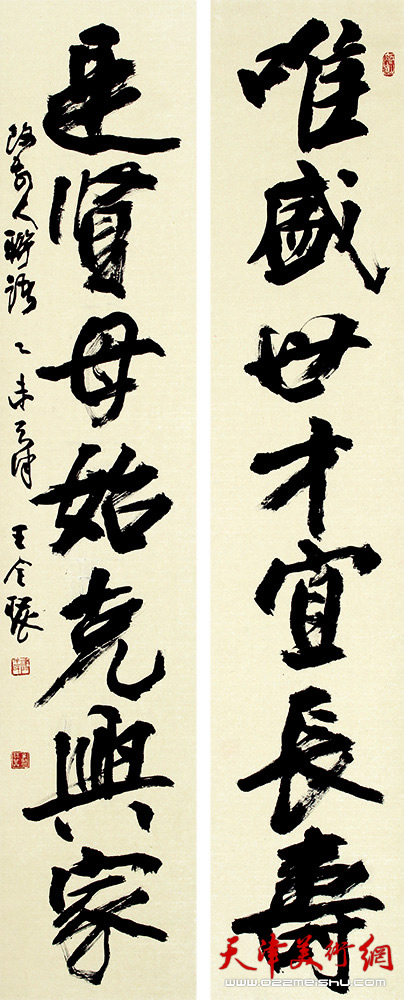 唯盛世才宜长寿
是贤母始克興家
改前人聯語 乙未 天津 王全聚
天津美術網
www.022meishu.com